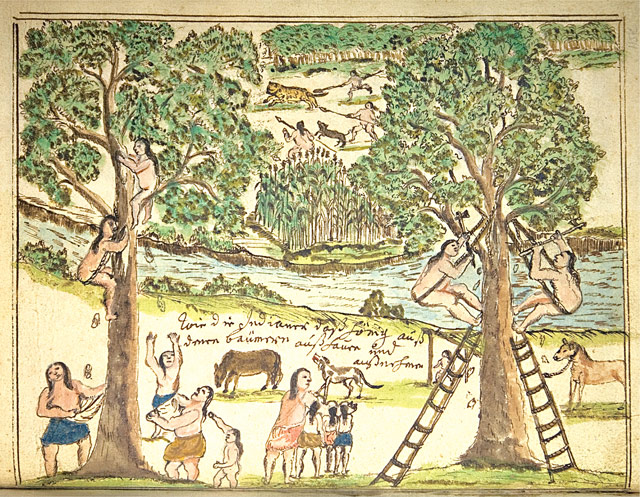 Wie die Indianer daß hönig auß
denen bäumern auß hauen und
außnehmen